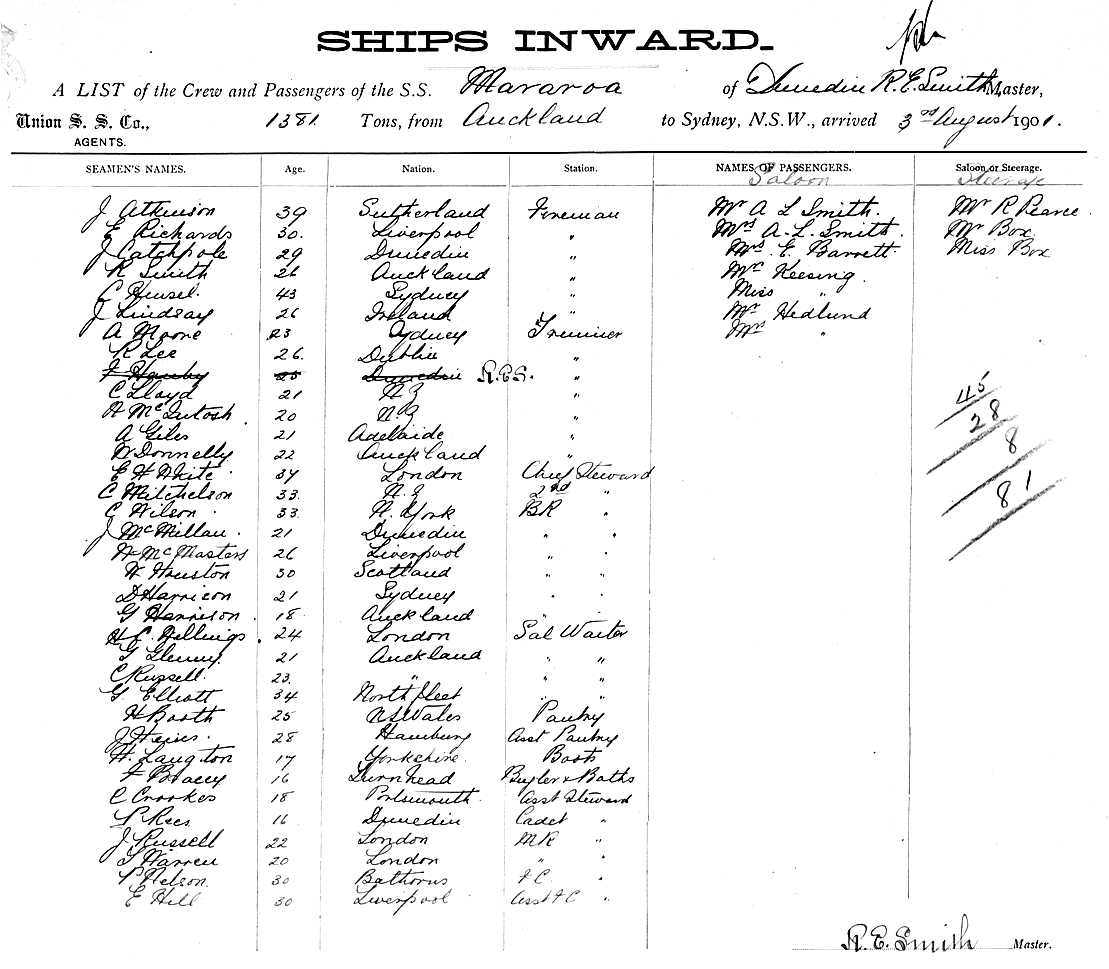 SHIPS INWARD.
A LIST of the Crew and Passengers of the S.S. Mararoa of Dunedin R.E. Smith, Master,
Union S. S. Co., 1381 Tons, from Auckland to Sydney, N.S.W., arrived 3rd August 1901.
AGENTS.
SEAMEN'S NAMES. Age. Nation. Station. NAMES OF PASSENGERS. Saloon or Steerage.
Saloon Steerage
J Atkinson 39 Sutherland Fireman Mr A L Smith. Mr R Pearce
E Rickards 30. Liverpool " Mrs A. L. Smith. Mr Box
J Catchpole 29 Dunedin " Mrs E Barrett Miss Box
R Smith 26 Auckland " Mrs Keesing
C Hensel. 43 Sydney " Miss "
J Lindsay 26 Ireland " Mr Hedlund
A Moore 23 Sydney Trimmer Mrs "
R Lee 26. Dublin "
25 Dunedin R.E.S. "
C Lloyd 21 N Z "
H McIntosh 20 N.Z "
A Giles 21 Adelaide "
W Donnelly 22 Auckland "
E H White 34 London Chief Steward
C Mitchelson 33 N.Z 2nd "
C Wilson 33 N. York BR "
J McMillan 21 Dunedin " "
H McMasters 26 Liverpool " "
W Houston 30 Scotland " "
D Harrison 21 Sydney " "
G Harrison 18 Auckland "
H C Hellings 24 London Sal Waiter
21 Auckland " "
C Russell 23. " " "
G Elliott 34 Northfleet " "
H Booth 25 N S Wales Pantry
28 Hamburg Asst Pantry
H. Langton 17 Yorkshire Boots
F Bracey 16 Bugler & Baths
C Crookes 18 Portsmouth Asst Steward
P Rees 16 Dunedin Cadet "
J Russell 22 London M R "
T Warren 20 London " "
P Nelson 30 F C "
E Hill 30 Liverpool Asst F C "
45
28
8
81
R.E. Smith Master.